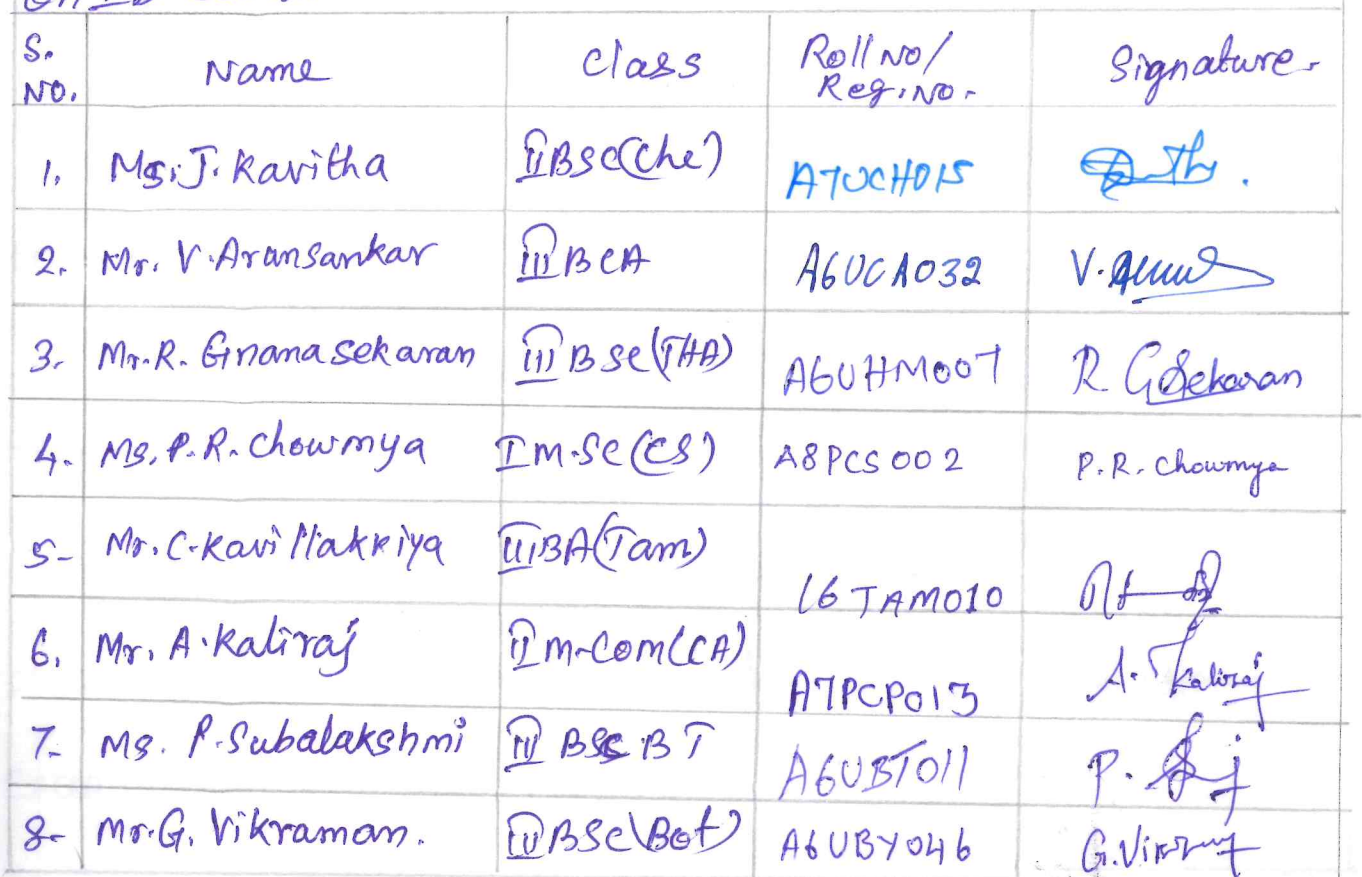 S. NO. Name Class Roll No/ Reg. No. Signature.
1. Ms. J. Kavitha II BSc(Che) A7UCH015
2. Mr. V. Aransankar III BCA A6UCA032 V.
3. Mr. R. Gnanasekaran III BSc(THA) A6UHM007 R. G Sekaran
4. Ms. P. R. Chowmya I M.Sc (CS) A8PCS002 P. R. Chowmya
5- Mr. C. Kavi Makkiya III BA(Tam) 16 TAM010
6. Mr. A. Kaliraj II M.Com(CA) A7PCP013 A. Kaliraj
7. Ms. P. Subalakshmi III BSc BT A6UBT011 P.
8- Mr. G. Vikraman. III BSc(Bot) A6UBY046